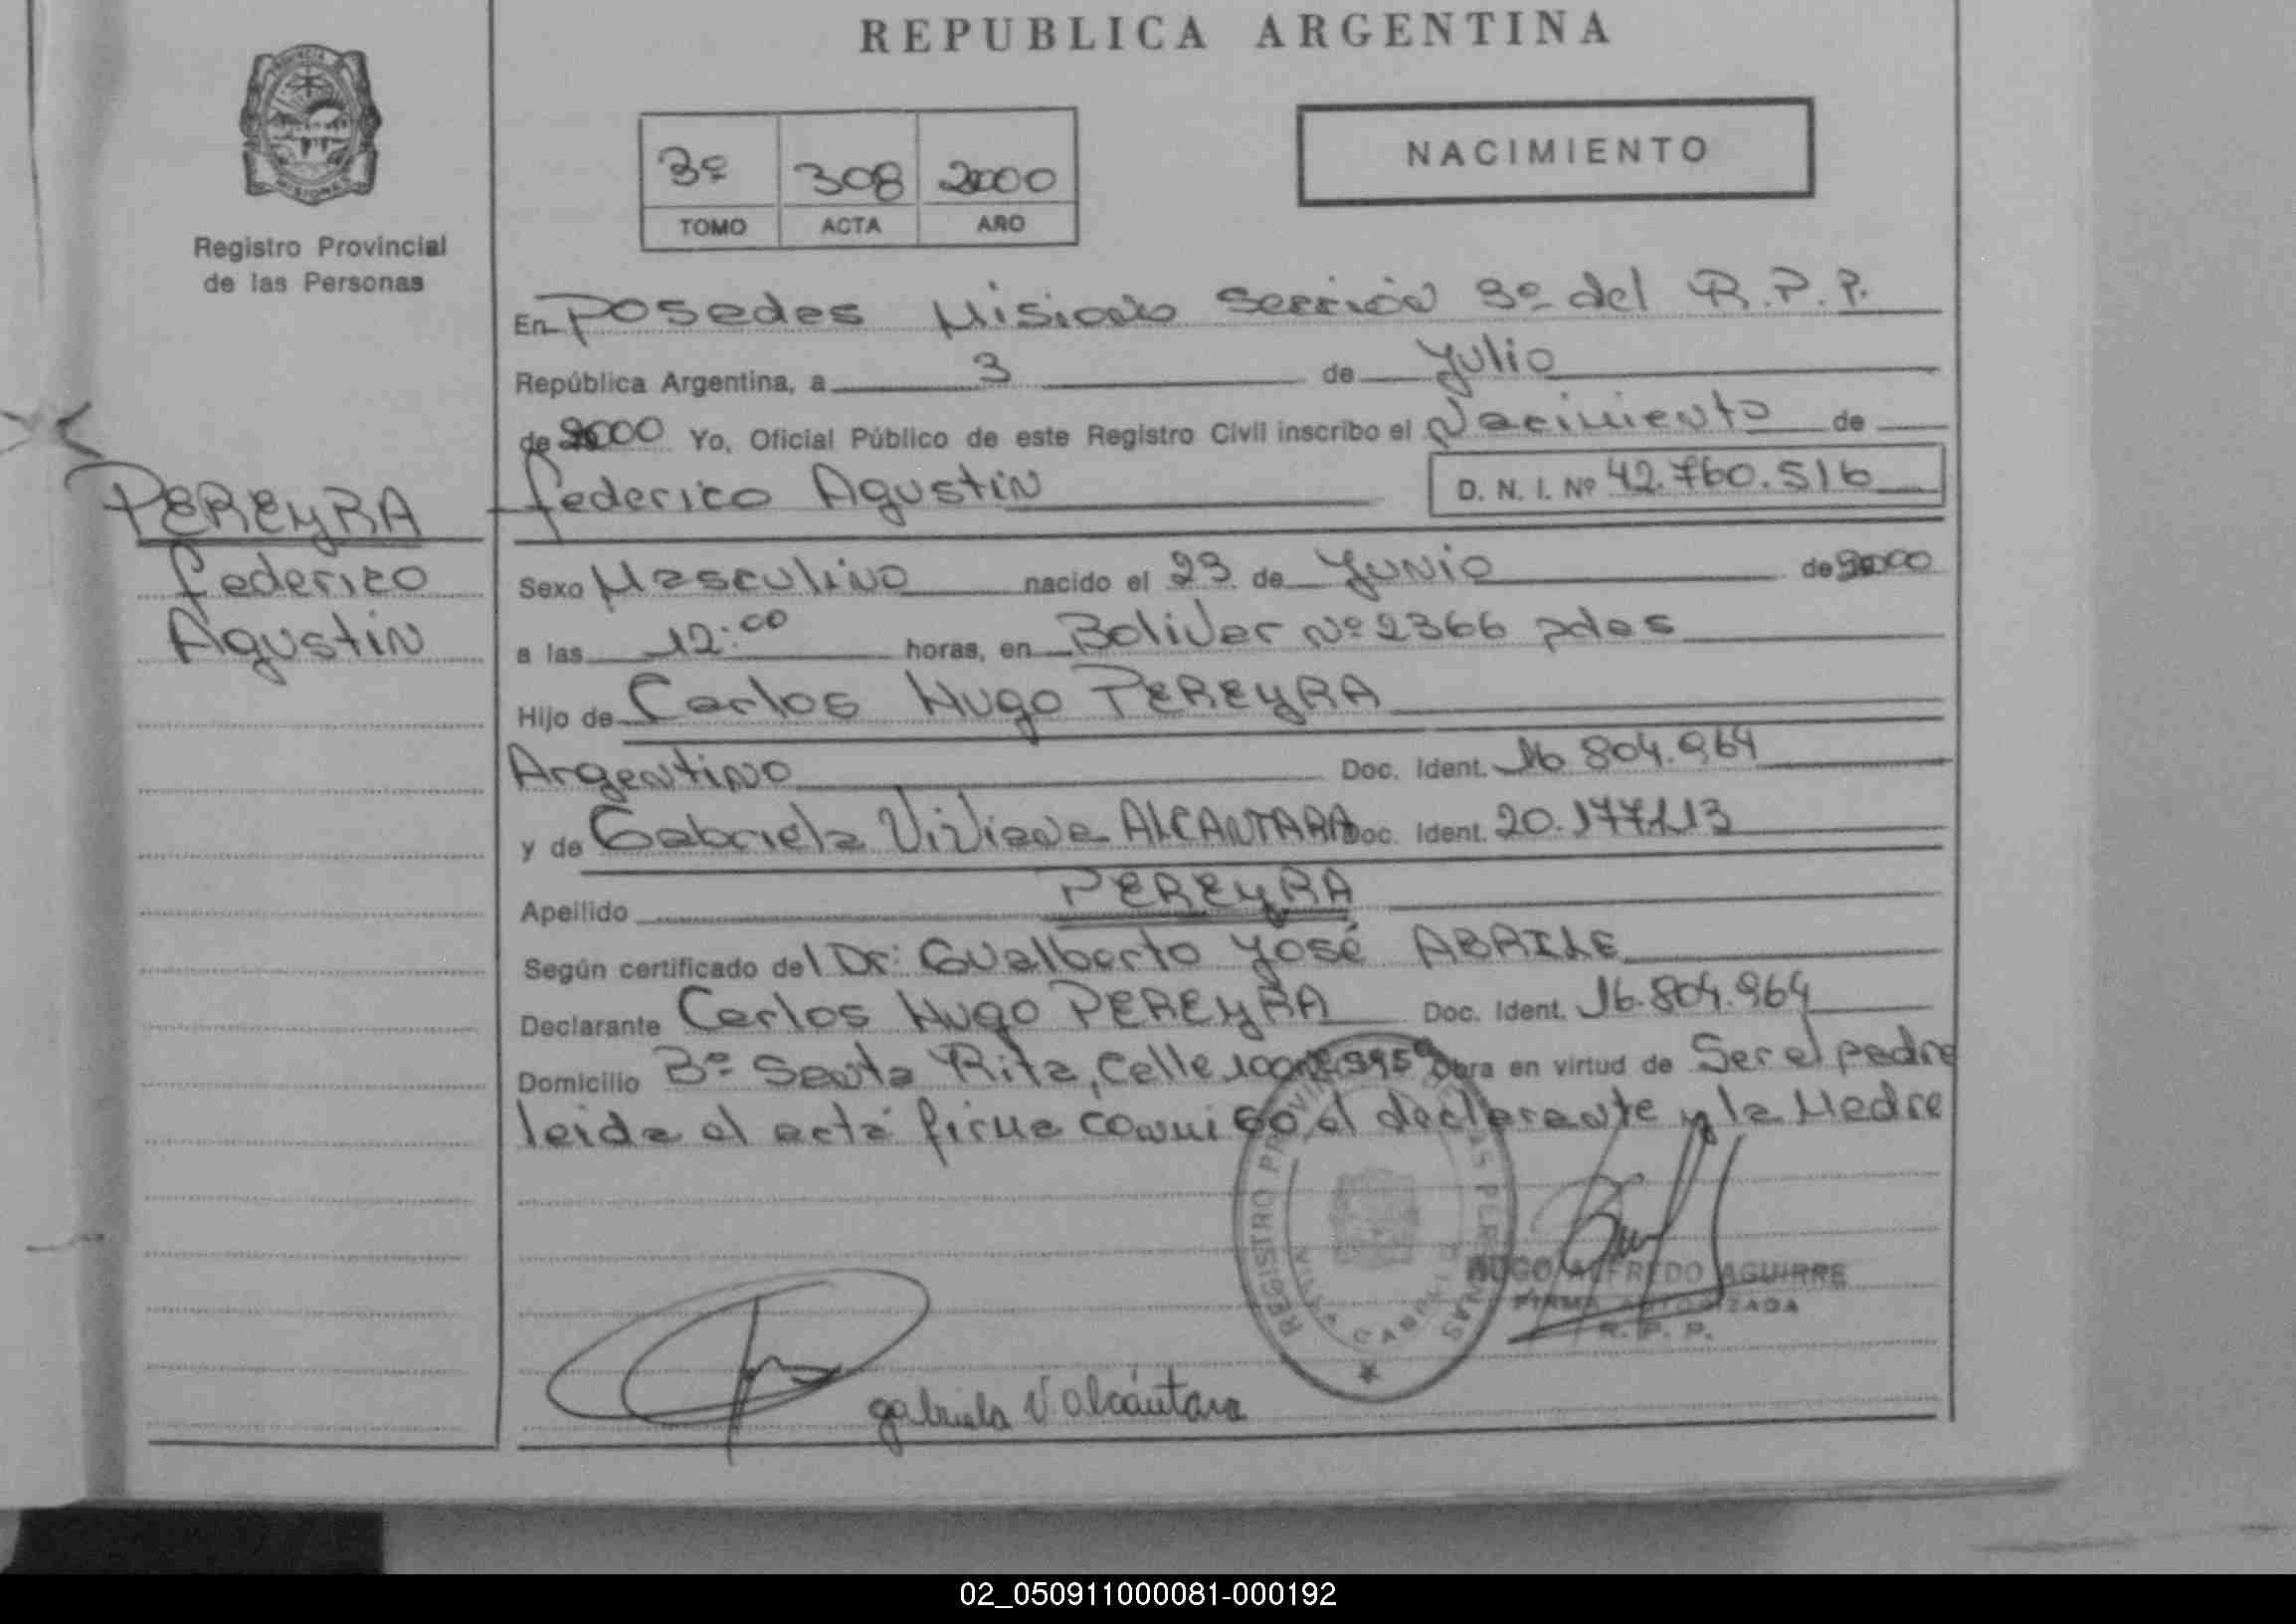 REPUBLICA ARGENTINA
PROVINCIA
MISIONES
Registro Provincial
de las Personas
3º 308 2000
TOMO ACTA AÑO
NACIMIENTO
En Posadas Misiones Sección 3º del R.P.P.
República Argentina, a 3 de Julio
de 2000 Yo, Oficial Público de este Registro Civil inscribo el Nacimiento de
Federico Agustin D. N. I. Nº 42.760.516
PEREYRA
Federico
Agustin
Sexo Masculino nacido el 23 de Junio de 2000
a las 12:00 horas, en Bolivar Nº 2366 pdas
Hijo de Carlos Hugo PEREYRA
Argentino Doc. Ident. 16.804.964
y de Gabriela Viviana ALCANTARA Doc. Ident. 20.177.113
Apellido PEREYRA
Según certificado del Dr: Gualberto José ABRILE
Declarante Carlos Hugo PEREYRA Doc. Ident. 16.804.964
Domicilio Bº Santa Rita, Calle 100 Obra en virtud de Ser el padre
leida el acta firma conmigo el declarante y la Madre
REGISTRO PROVINCIAL DE LAS PERSONAS
HUGO ALFREDO AGUIRRE
FIRMA AUTORIZADA
R. P. P.
gabriela V. Alcántara
02_050911000081-000192